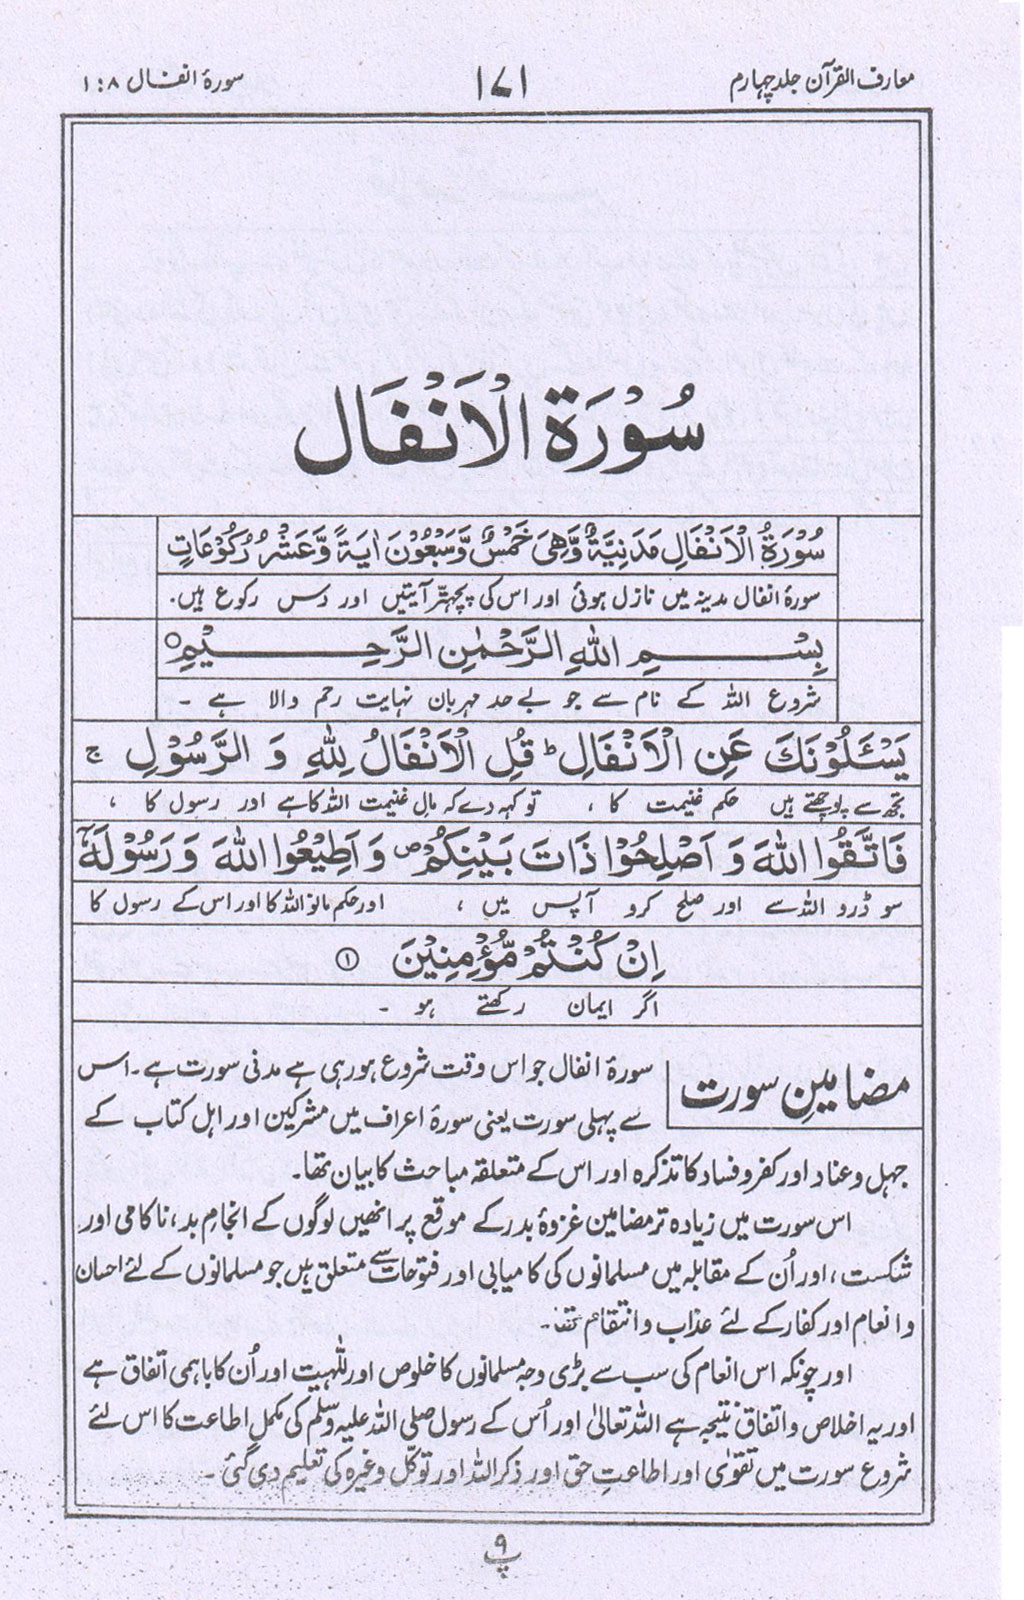 معارف القرآن جلد چہارم
۱۷۱
سورۂ انفال ۸ : ۱
سُوْرَةُ الْاَنْفَالِ
سُوْرَةُ الْاَنْفَالِ مَدَنِيَّةٌ وَّهِيَ خَمْسٌ وَّسَبْعُوْنَ اٰيَةً وَّعَشْرُ رُكُوْعَاتٍ
سورۂ انفال مدینہ میں نازل ہوئی اور اس کی پچھتر آیتیں اور دس رکوع ہیں۔
بِسْمِ اللّٰهِ الرَّحْمٰنِ الرَّحِيْمِ ○
شروع اللہ کے نام سے جو بے حد مہربان نہایت رحم والا ہے ۔
يَسْـَٔلُوْنَكَ عَنِ الْاَنْفَالِ ؕ قُلِ الْاَنْفَالُ لِلّٰهِ وَ الرَّسُوْلِ ۚ
تجھ سے پوچھتے ہیں حکم غنیمت کا ، تو کہہ دے کہ مال غنیمت اللہ کا ہے اور رسول کا ،
فَاتَّقُوا اللّٰهَ وَ اَصْلِحُوْا ذَاتَ بَيْنِكُمْ ۪ وَ اَطِيْعُوا اللّٰهَ وَ رَسُوْلَهٗۤ
سو ڈرو اللہ سے اور صلح کرو آپس میں ، اور حکم مانو اللہ کا اور اس کے رسول کا
اِنْ كُنْتُمْ مُّؤْمِنِيْنَ ①
اگر ایمان رکھتے ہو ۔
مضامینِ سورت
سورۂ انفال جو اس وقت شروع ہو رہی ہے مدنی سورت ہے۔ اس
سے پہلی سورت یعنی سورۂ اعراف میں مشرکین اور اہل کتاب کے
جہل و عناد اور کفر و فساد کا تذکرہ اور اس کے متعلقہ مباحث کا بیان تھا۔
اس سورت میں زیادہ تر مضامین غزوۂ بدر کے موقع پر انھیں لوگوں کے انجامِ بد، ناکامی اور
شکست ، اور اُن کے مقابلہ میں مسلمانوں کی کامیابی اور فتوحات سے متعلق ہیں جو مسلمانوں کے لئے احسان
و انعام اور کفار کے لئے عذاب و انتقام تھا۔
اور چونکہ اس انعام کی سب سے بڑی وجہ مسلمانوں کا خلوص اور للّٰہیت اور اُن کا باہمی اتفاق ہے
اور یہ اخلاص و اتفاق نتیجہ ہے اللہ تعالیٰ اور اُس کے رسول صلی اللہ علیہ وسلم کی مکمل اطاعت کا اس لئے
شروع سورت میں تقویٰ اور اطاعتِ حق اور ذکر اللہ اور توکّل وغیرہ کی تعلیم دی گئی ۔